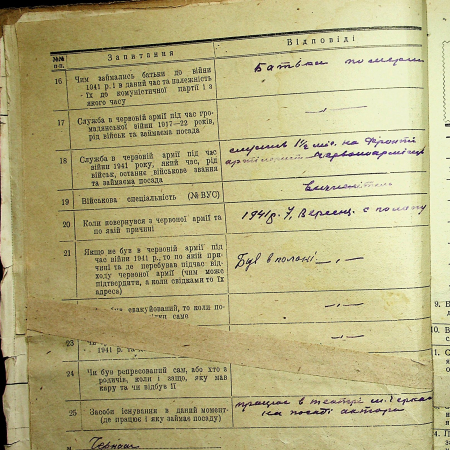 №№
п-п.
Запитання
Відповіді
16
Чим займались батьки до війни
1941 р. і в даний час та належність
їх до комуністичної партії і з
якого часу
Батьки померли
17
Служба в червоній армії під час гро-
мадянської війни 1917—22 років,
рід військ та займаєма посада
— „ —
18
Служба в червоній армії під час
війни 1941 року, який час, рід
військ, останнє військове звання
та займаєма посада
служив 1½ міс. на фронті
червоноармієць
19
Військова спеціяльність (№ ВУС)
20
Коли повернувся з червоної армії та
по яаій причині
1941 р. 7, Вересн. с полону
21
Якщо не був в червоній армії
під час війни 1941 р., то по якій при-
чині та де перебував підчас відхо-
ду червоної армії (чим може
підтвердити, а коли свідками то їх
адреса)
Був в полоні — „ —
евакуйований, то коли по-
саме
— „ —
23
1941 р. та
— „ —
24
Чи був репресований сам, або хто з
родичів, коли і защо, яку мав
кару та чи відбув її
25
Засоби існування в даний момент
(де працює і яку займає посаду)
працює в театрі м. Черкас
на посаді актора